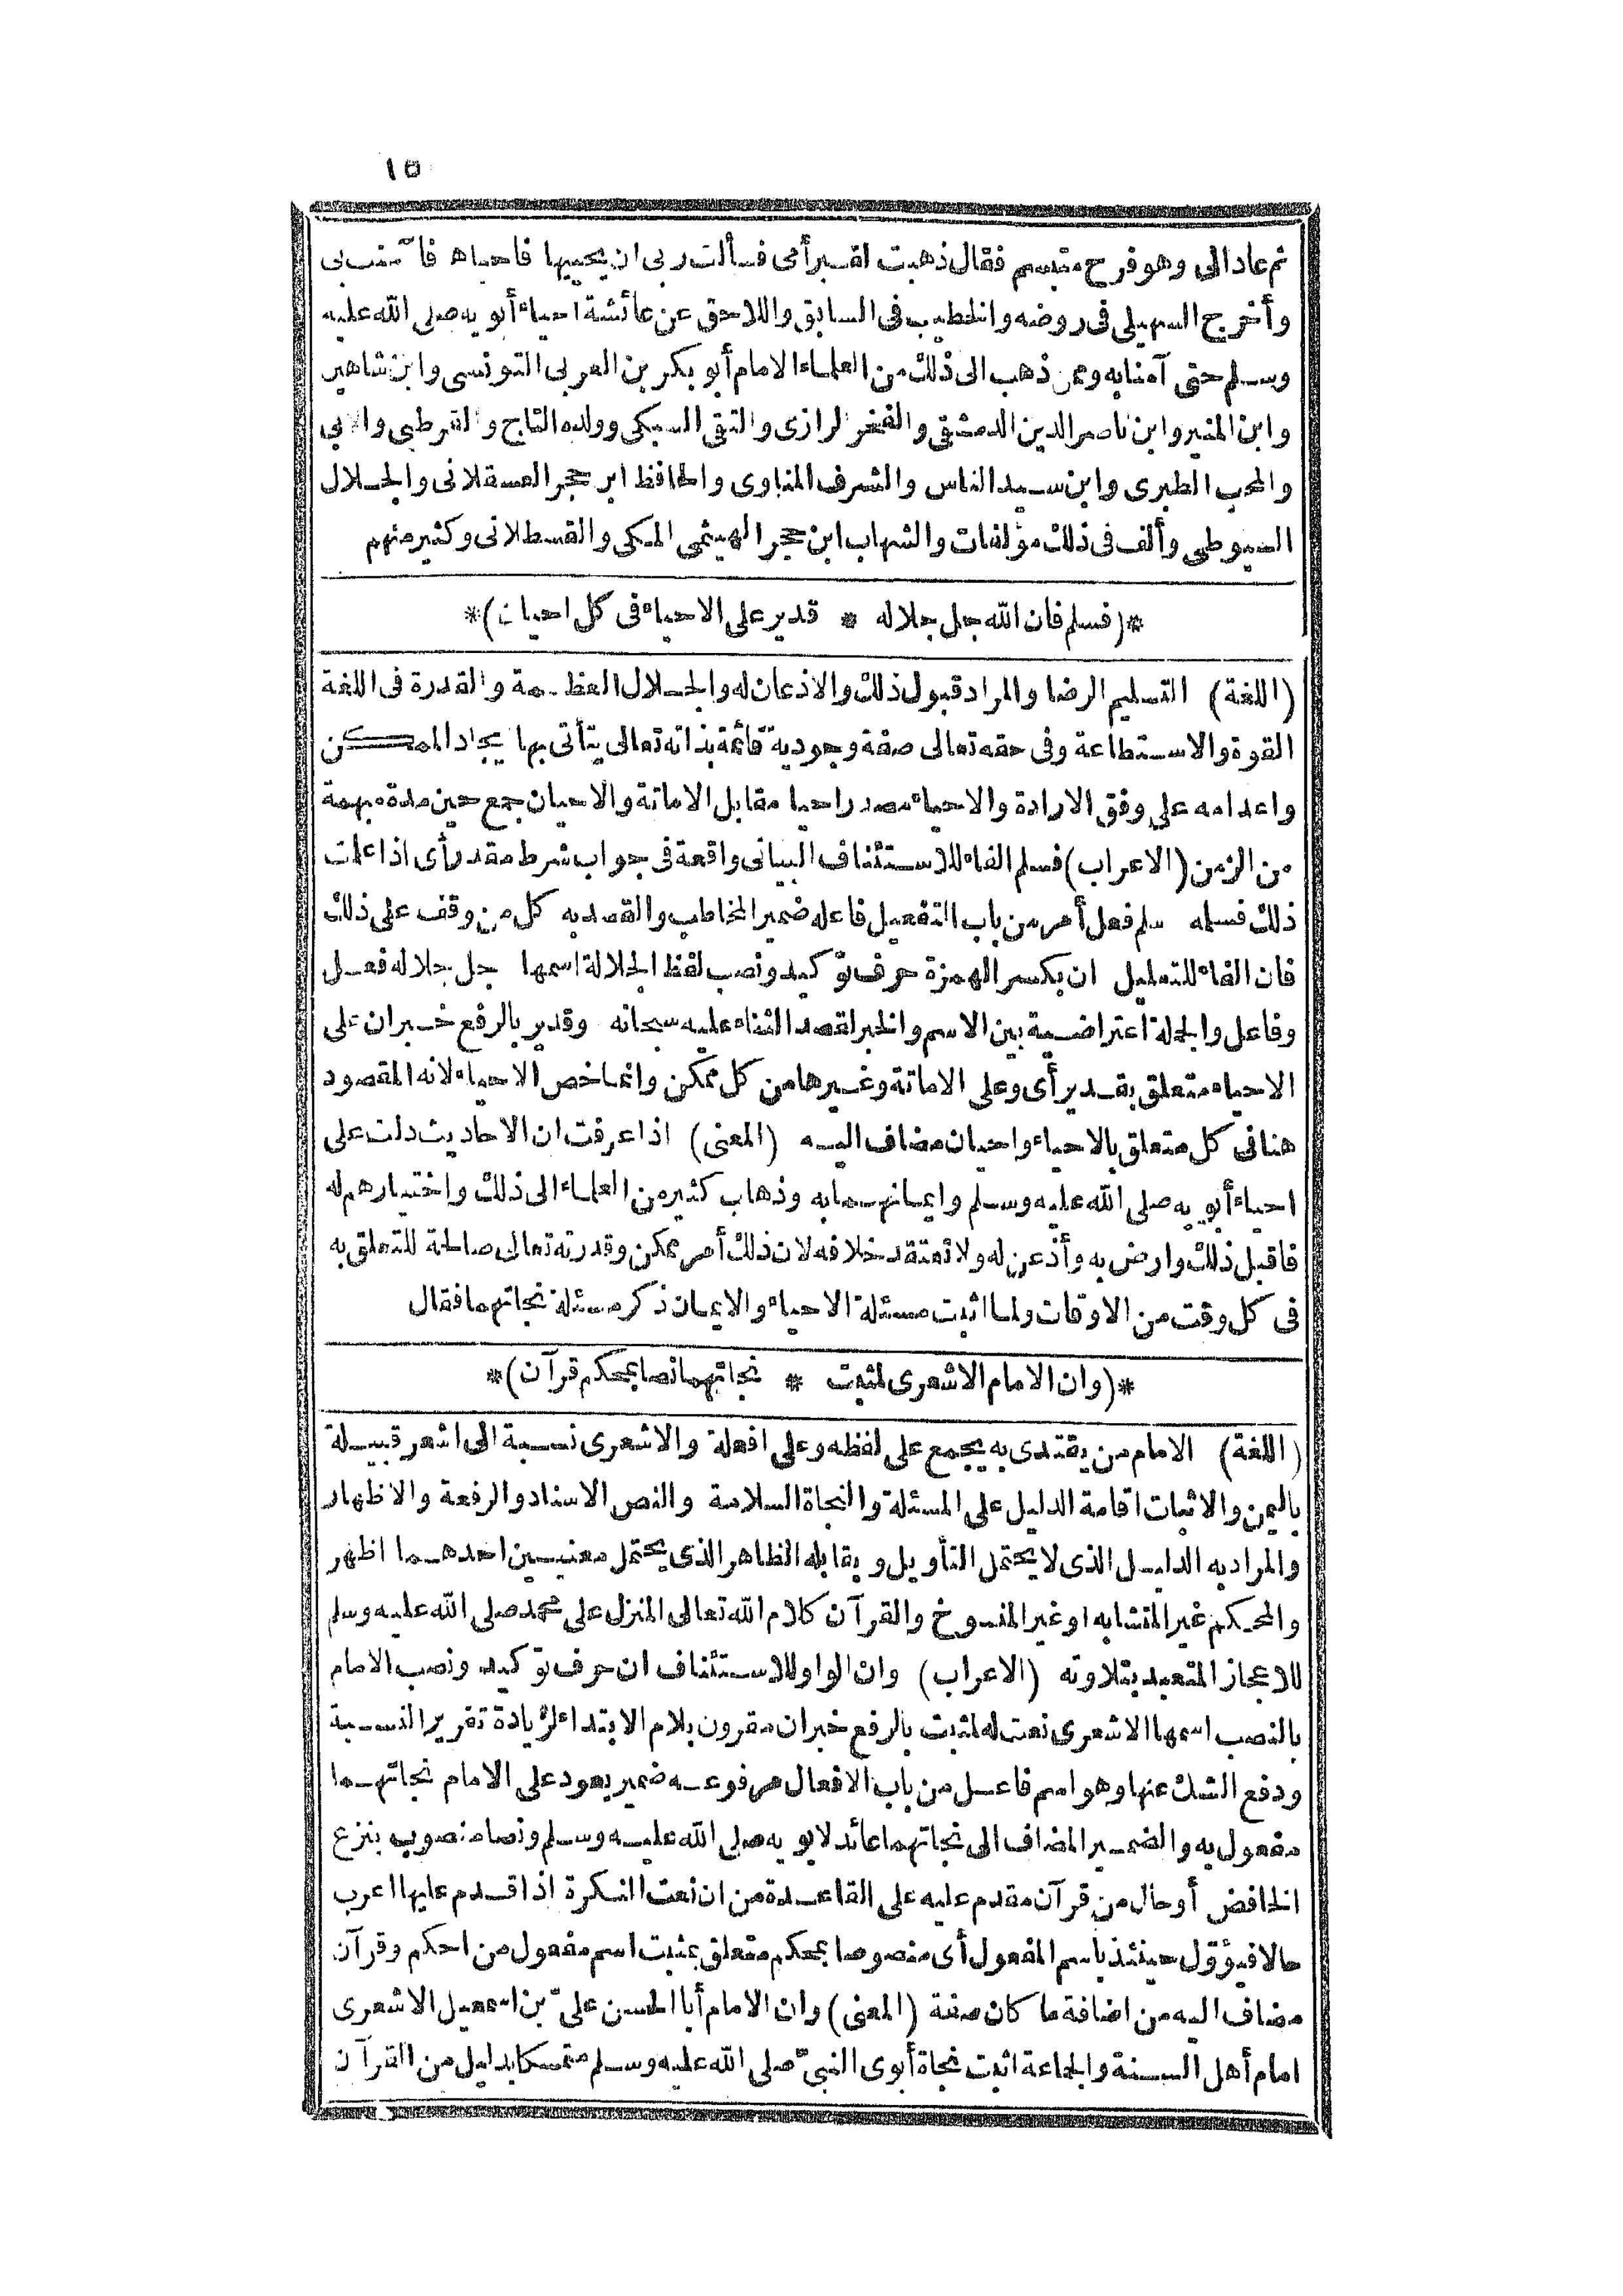 ١٥
ثم عاد الى وهو فرح متبسم فقال ذهبت لقبر أمى فسألت ربى ان يحييها فاحياها فآمنت بى
وأخرج السهيلى فى روضه والخطيب فى السابق واللاحق عن عائشة احياء أبويه صلى الله عليه
وسلم حتى آمنا به وممن ذهب الى ذلك من العلماء الامام أبو بكر بن العربى التونسى وابن شاهين
وابن المنير وابن ناصر الدين الدمشقى والفخر الرازى والتقى السبكى وولده التاج والقرطبى والابى
والمحب الطبرى وابن سيد الناس والشرف المناوى والحافظ ابن حجر العسقلانى والجلال
السيوطى وألف فى ذلك مؤلفات والشهاب ابن حجر الهيثمى المكى والقسطلانى وكثير منهم
*(فسلم فان الله جل جلاله * قدير على الاحياء فى كل احيان)*
(اللغة) التسليم الرضا والمراد قبول ذلك والاذعان له والجلال العظمة والقدرة فى اللغة
القوة والاستطاعة وفى حقه تعالى صفة وجودية قائمة بذاته تعالى يتأتى بها ايجاد الممكن
واعدامه على وفق الارادة والاحياء مصدر احيا مقابل الاماتة والاحيان جمع حين مدة مبهمة
من الزمن (الاعراب) فسلم الفاء للاستئناف البيانى واقعة فى جواب شرط مقدر أى اذا علمت
ذلك فسلمه سلم فعل أمر من باب التفعيل فاعله ضمير المخاطب والقصد به كل من وقف على ذلك
فان الفاء للتعليل ان بكسر الهمزة حرف توكيد ونصب لفظ الجلالة اسمها جل جلاله فعل
وفاعل والجملة اعتراضية بين الاسم والخبر لقصد الثناء عليه سبحانه وقدير بالرفع خبران على
الاحياء متعلق بقدير أى وعلى الاماتة وغيرها من كل ممكن وانما خص الاحياء لانه المقصود
هنا فى كل متعلق بالاحياء واحيان مضاف اليه (المعنى) اذا عرفت ان الاحاديث دلت على
احياء أبويه صلى الله عليه وسلم وايمانهما به وذهاب كثير من العلماء الى ذلك واختيارهم له
فاقبل ذلك وارض به وأذعن له ولا تعتقد خلافه لان ذلك أمر ممكن وقدرته تعالى صالحة للتعلق به
فى كل وقت من الاوقات ولما اثبت مسئلة الاحياء والايمان ذكر مسئلة نجاتهما فقال
*(وان الامام الاشعرى لمثبت * نجاتهما نصا بمحكم قرآن)*
(اللغة) الامام من يقتدى به يجمع على لفظه وعلى افعلة والاشعرى نسبة الى اشعر قبيلة
باليمن والاثبات اقامة الدليل على المسئلة والنجاة السلامة والنص الاسناد والرفعة والاظهار
والمراد به الدليل الذى لا يحتمل التأويل ويقابله الظاهر الذى يحتمل معنيين احدهما اظهر
والمحكم غير المتشابه او غير المنسوخ والقرآن كلام الله تعالى المنزل على محمد صلى الله عليه وسلم
للاعجاز المتعبد بتلاوته (الاعراب) وان الواو للاستئناف ان حرف توكيد ونصب الامام
بالنصب اسمها الاشعرى نعت له لمثبت بالرفع خبران مقرون بلام الابتداء لزيادة تقرير النسبة
ودفع الشك عنها وهو اسم فاعل من باب الافعال مرفوعه ضمير يعود على الامام نجاتهما
مفعول به والضمير المضاف الى نجاتهما عائد لابويه صلى الله عليه وسلم ونصا منصوب بنزع
الخافض أو حال من قرآن مقدم عليه على القاعدة من ان نعت النكرة اذا قدم عليها اعرب
حالا فيؤول حينئذ باسم المفعول أى منصوصا بمحكم متعلق بمثبت اسم مفعول من احكم وقرآن
مضاف اليه من اضافة ما كان صفة (المعنى) وان الامام أبا الحسن علىّ بن اسمعيل الاشعرى
امام أهل السنة والجماعة اثبت نجاة أبوى النبىّ صلى الله عليه وسلم متمسكا بدليل من القرآن